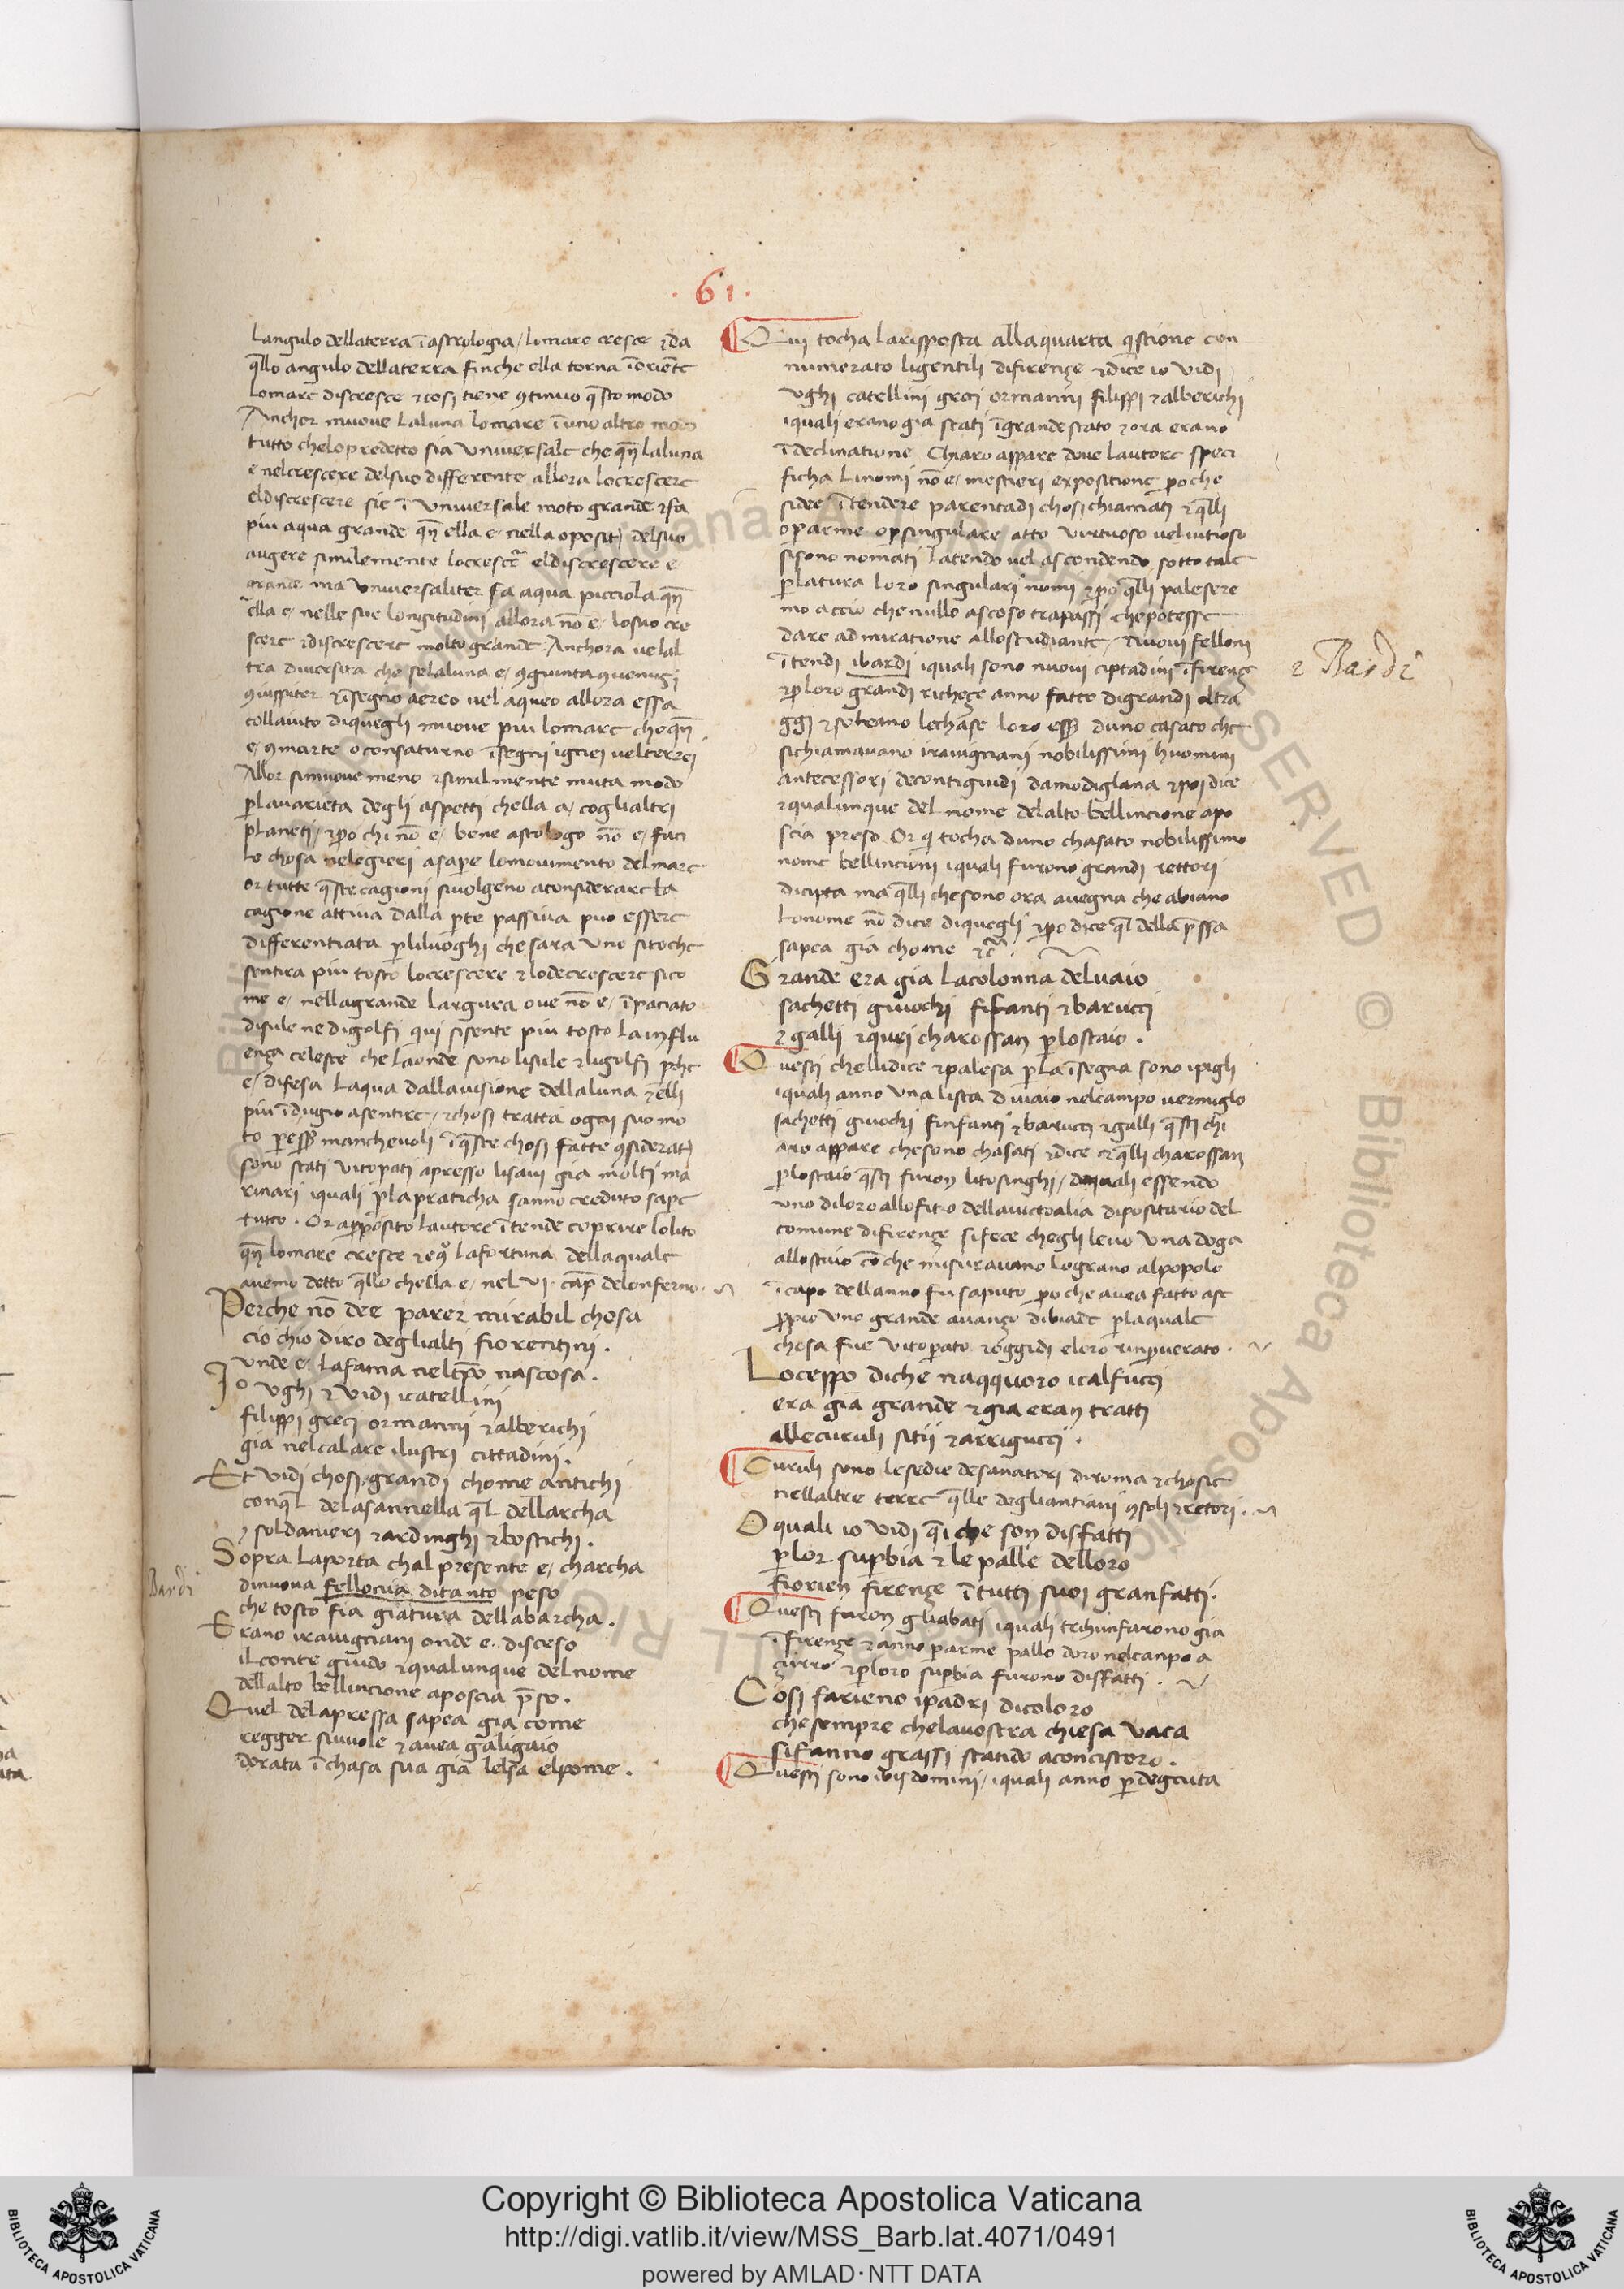 .61.
Langulo dellaterra ĩ astrologia / lomare cresce ⁊ da
q̃llo angulo dellaterra finche ella torna ĩ oriẽte
Lomare discresce ⁊ cosi tiene ꝯtinuo q̃sto modo
Anchor muove Laluna lomare ĩ uno altro modo
tutto chelo predetto sia universale che qñ laluna
e nelcrescere delsuo differente allora locrescere
eldiscrescere sie ĩ universale moto grande ⁊ fa
piu aqua grande qñ ella e / nella oposit) delsuo
augere similemente locrescẽ eldiscrescere e
grande ma universaliter fa aqua picciola qñ
ella e / nelle sue longitudini allora nõ e / losuo cre
scere ⁊ discrescere molto grande. Anchora ve lal
tra diversita che selaluna e / ꝯgiunta ꝯvenus
ꝯiuppiter ⁊ ĩsegno aereo vel aqueo allora essa
collaiuto diquegli muove piu lomare cho qñ
e / ꝯmarte o consaturno ĩsegni ignei vel terrei
Allor simuove meno ⁊ similmente muta modo
p̲lavarieta degli aspetti chella a / coglialtri
planeti / ⁊ po chi nõ e / bene astrologo nõ e / faci
le chosa nelegieri asapere lomovimento delmare
or tutte q̃ste cagioni sivolgeno aconsiderare la
cagione attiva dalla p̲te passiva puo essere
differentiata p̲liluoghi che sara uno sitoche
sentira piu tosto locrescere ⁊ lodecrescere sico
me e / nellagrande largura ove nõ e / ĩpaciato
disule ne digolfi qui sisente piu tosto la influ
enza celeste che laonde sono lisule ⁊ ligolfi p̲che
e / difesa laqua dallavisione dellaluna ⁊ elli
piu ĩdugio asentire / ⁊ chosi tratta ogni suo mo
to p̲ess̃ manchevoli ĩ q̃ste chosi fatte ꝯsiderat)
sono stati vitop̲ati apresso lisavi gia molti ma
rinari iquali p̲lapraticha sanno creduto sap̲e
tutto. Or app̲osito lautore ĩtende coprire lolito
qñ lomare cresce ⁊ eq̃ lafortuna dellaquale
avemo detto q̃llo chella e / nel VI. cap̃ delonferno.
Perche nõ dee parer mirabil chosa
cio chio diro deglialti fiorentini.
unde e lafama neltp̃o nascosa.
Io Vghi ⁊ vidi icatellini
filippi greci ormanni ⁊ alberichi
gia nelcalare ilustri cittadini.
Et vidi chosi grandi chome antichi
conq̃l delasannella q̃l dellarcha
⁊ soldanieri ⁊ ardinghi ⁊ bostichi.
Sopra laporta chal presente e / charcha
Bardi
dinuova fellonia ditanto peso
che tosto fia giatura dellabarcha.
Erano iravigniani onde e. disceso
ilconte guido ⁊ qualunque delnome
dellalto bellincione aposcia p̃so.
Quel delapressa sapea gia come
regger sivuole ⁊ avea galigaio
dorata ĩ chasa sua gia lelsa elpome.
Qui tocha larisposta allaquarta q̃stione con
numerato ligentili difirenze ⁊ dice io vidi
vghi catellini greci ormanni filippi ⁊ alberichi
iquali erano gia stati ĩ grande stato ⁊ ora erano
ĩ declinatione. Chiaro appare dove lautore speci
ficha linomi nõ e / mestieri expositione p̲oche
sidee ĩtendere parentadi chosi chiamati ⁊ q̃lli
op̲arme op̲singulare atto virtuoso vel vitioso
sisono nomati latendo vel ascondendo sotto tale
p̲latura loro singulari nomi ⁊ po q̃lli palesere
mo accio che nullo ascoso trapassi / chepotesse
dare admiratione allostudiante / Nuovi felloni
ĩtendi ibardi iquali sono nuovi ciptadini ĩfirenze
2 Bardi
⁊ p̲loro grandi richeze anno fatto digrandi oltra
ggi ⁊ soteano lechase loro ess̃ duno casato che
sichiamavano iravigniani nobilissimi huomini
antecessori decontiguidi damodigliana ⁊ poi dice
⁊ qualunque del nome delalto bellincione apo
scia preso Or q̃ tocha duno chasato nobilissimo
nome bellincioni iquali furono grandi rettori
dicipta ma q̃lli chesono ora avegna che abiano
lonome nõ dice diquegli ⁊ po dice q̃l della p̃ssa
sapea gia chome ⁊c̃.
Grande era gia lacolonna delvaio
sachetti giuochi fifanti ⁊ barucci
⁊ galli ⁊ quei charossan p̲lostaio.
Questi chellidice ⁊ palesa p̲la ĩsegna sono ipigli
iquali anno una lista d vaio nelcampo vermiglo
sachetti giuochi finfanti ⁊ barucci ⁊ galli q̃sti chi
aro appare chesono chasati ⁊ dice ⁊ q̃lli charossan
p̲lostaio q̃sti furon litosinghi / dequali essendo
uno diloro allofitio dellavictoalia dipositario del
comune difirenze sifece chegli levo una doga
allostaio cõ che misuravano lograno alpopolo
ĩ capo dellanno fu saputo p̲o che avea fatto ase
p̲pio uno grande avanzo dibiade p̲laquale
chosa fue vitop̲ato ⁊ oggidi eloro rinp̲verato.
Loceppo diche naqquoro icalfucci
era gia grande ⁊ gia eran tratti
allecuruli sitii ⁊ arrigucci.
Curuli sono lesedie desanatori diroma ⁊ chosie
nellaltre terre q̃lle degliantiani ꝯsoli ⁊ retori.
O quali io vidi q̃i che son disfatti
p̲lor sup̲bia ⁊ le palle delloro
fiorien firenze ĩ tutti suoi granfatti.
Questi furon gliabati iquali trihunfarono gia
ĩ firenze ⁊ anno p̲arme pallo doro nelcanpo a
zurro ⁊ p̲loro sup̲bia furono disfatti.
Cosi farieno ipadri dicoloro
che sempre chelavostra chiesa vaca
sifanno grassi stando aconcistoro.
Questi sono ibisdomini / iquali anno p̲degnita
Copyright © Biblioteca Apostolica Vaticana
http://digi.vatlib.it/view/MSS_Barb.lat.4071/0491
powered by AMLAD·NTT DATA
BIBLIOTECA APOSTOLICA VATICANA
BIBLIOTECA APOSTOLICA VATICANA